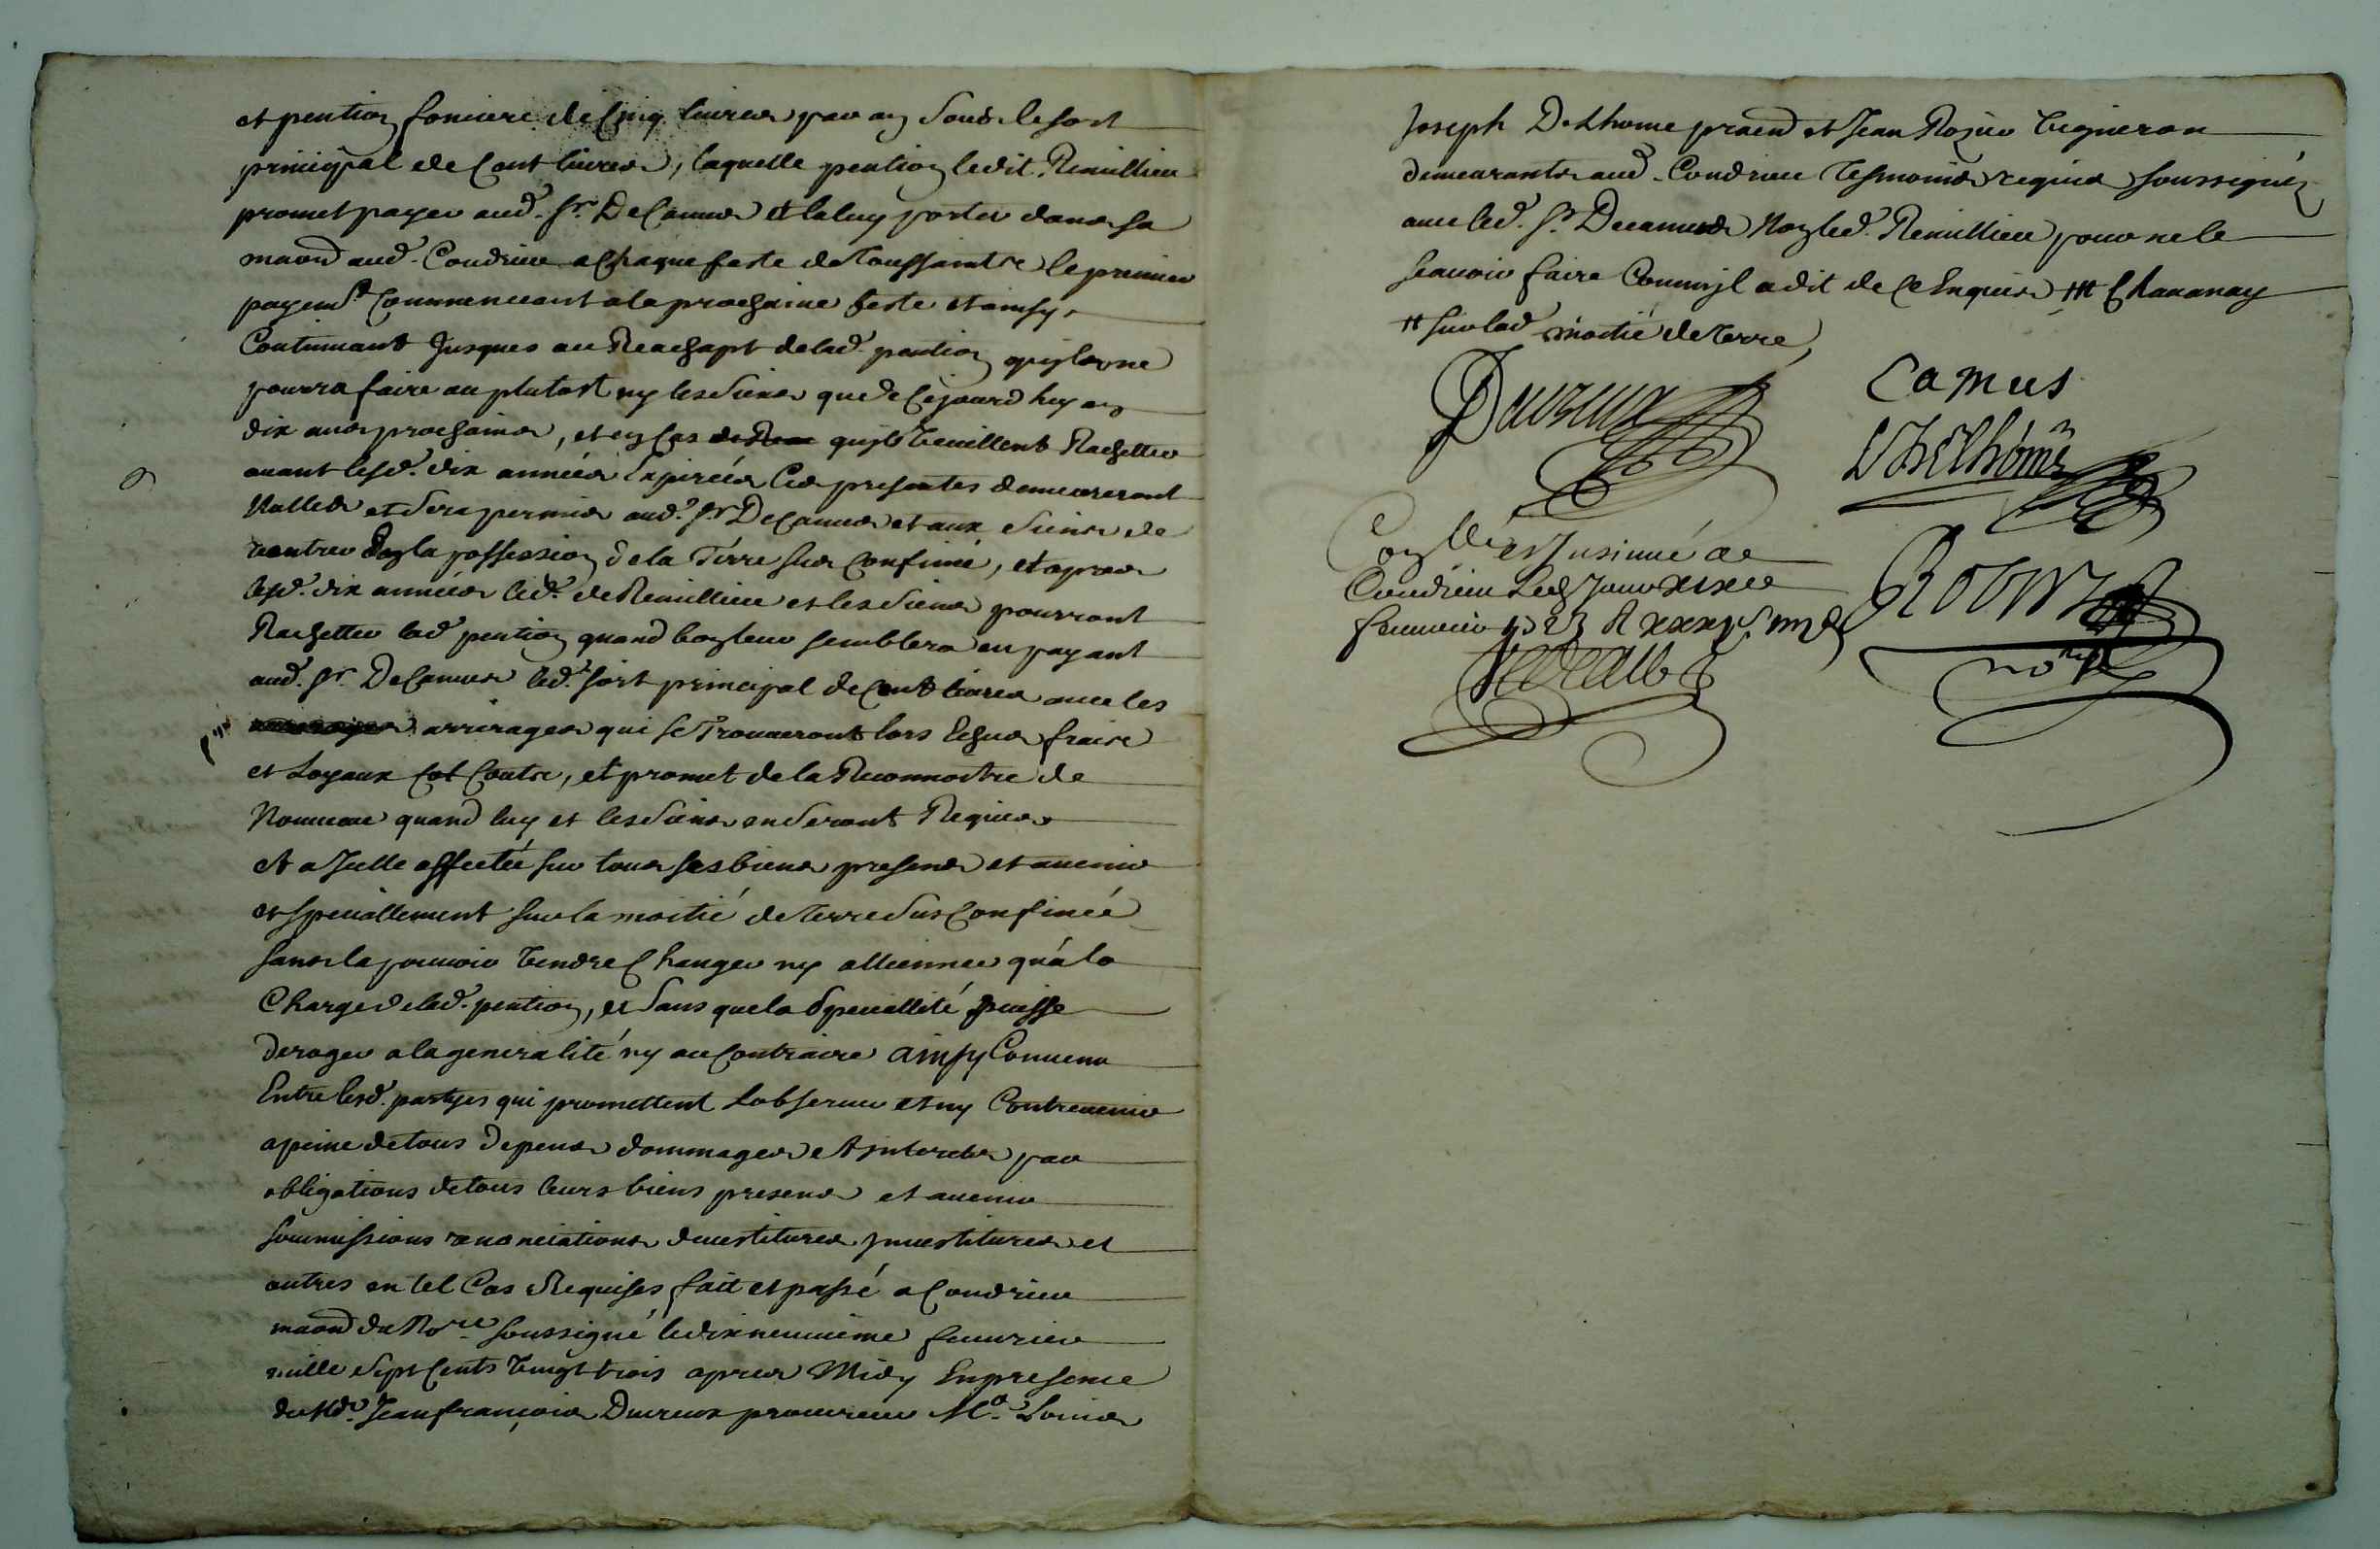 et pention fonciere de Cinq livres par an sous le sort
principal de Cent livres, laquelle pention ledit Remillieu
promet payer aud. Sr. De Camus et la luy porter dans sa
maon aud. Condrieu a Chaque feste de Toussaints le premier
payemt. Commenceant a la prochaine feste et ainsy
Continuant Jusques au Reachapt de lad. pention qu'il ne
pourra faire au plutost ny les siens que de Cejourd'huy en
dix ans prochains, et en Cas quils veuillent Rachetter
avant lesd. dix années Expirées Ces presentes demeureront
Nulles et sera permis aud. Sr. De Camus et aux siens de
rentrer En la possession de la Terre sus Confiné, et apres
lesd. dix années led. de Remillieu et les siens pourront
Rachetter lad. pention quand bon leur semblera en payant
aud. Sr. De Camus led. sort principal de Cent livres avec les
arrirages qui se Trouveront lors Echus fraix
et Loyaux Couts, et promet de la Reconnoitre de
Nouveau quand luy et les siens en seront Requis
et a Icelle affectée sur tous ses biens presens et avenir
et speciallement sur la moitié de terre sus Confinée
sans la pouvoir vendre Changer ny allienner qu'à la
Charge de lad. pention, et sans que la speciallité puisse
deroger a la generalité ny au Contraire ainsy Convenu
Entre lesd. partyes qui promettent Lobserver et ny Contrevenir
a peine de tous depens dommages et Interets par
obligations de tous leurs biens presens et avenir
soumissions renonciations devestitures Jnvestitures et
autres en tel Cas Requises fait et passé a Condrieu
maon du Nore. soussigné le dix neuvieme fevrier
mille sept Cents vingt trois apres Midy En presence
de Me. Jean françois Ducreux procureur Me. Louis
Joseph Delhome pratend et Jean Rozier vigneron
demeurants aud. Condrieu Tesmoins requis soussignés
avec led. Sr. Decamus Non led. Remillieu pour ne le
scavoir faire Comm'jl a dit de Ce Enquis
# sur lad. moitié de terre
Ducreux
Camus
Delhome
Conllé et Insinué a
Condrieu Led Jour xixe
fevrier 1723
nore